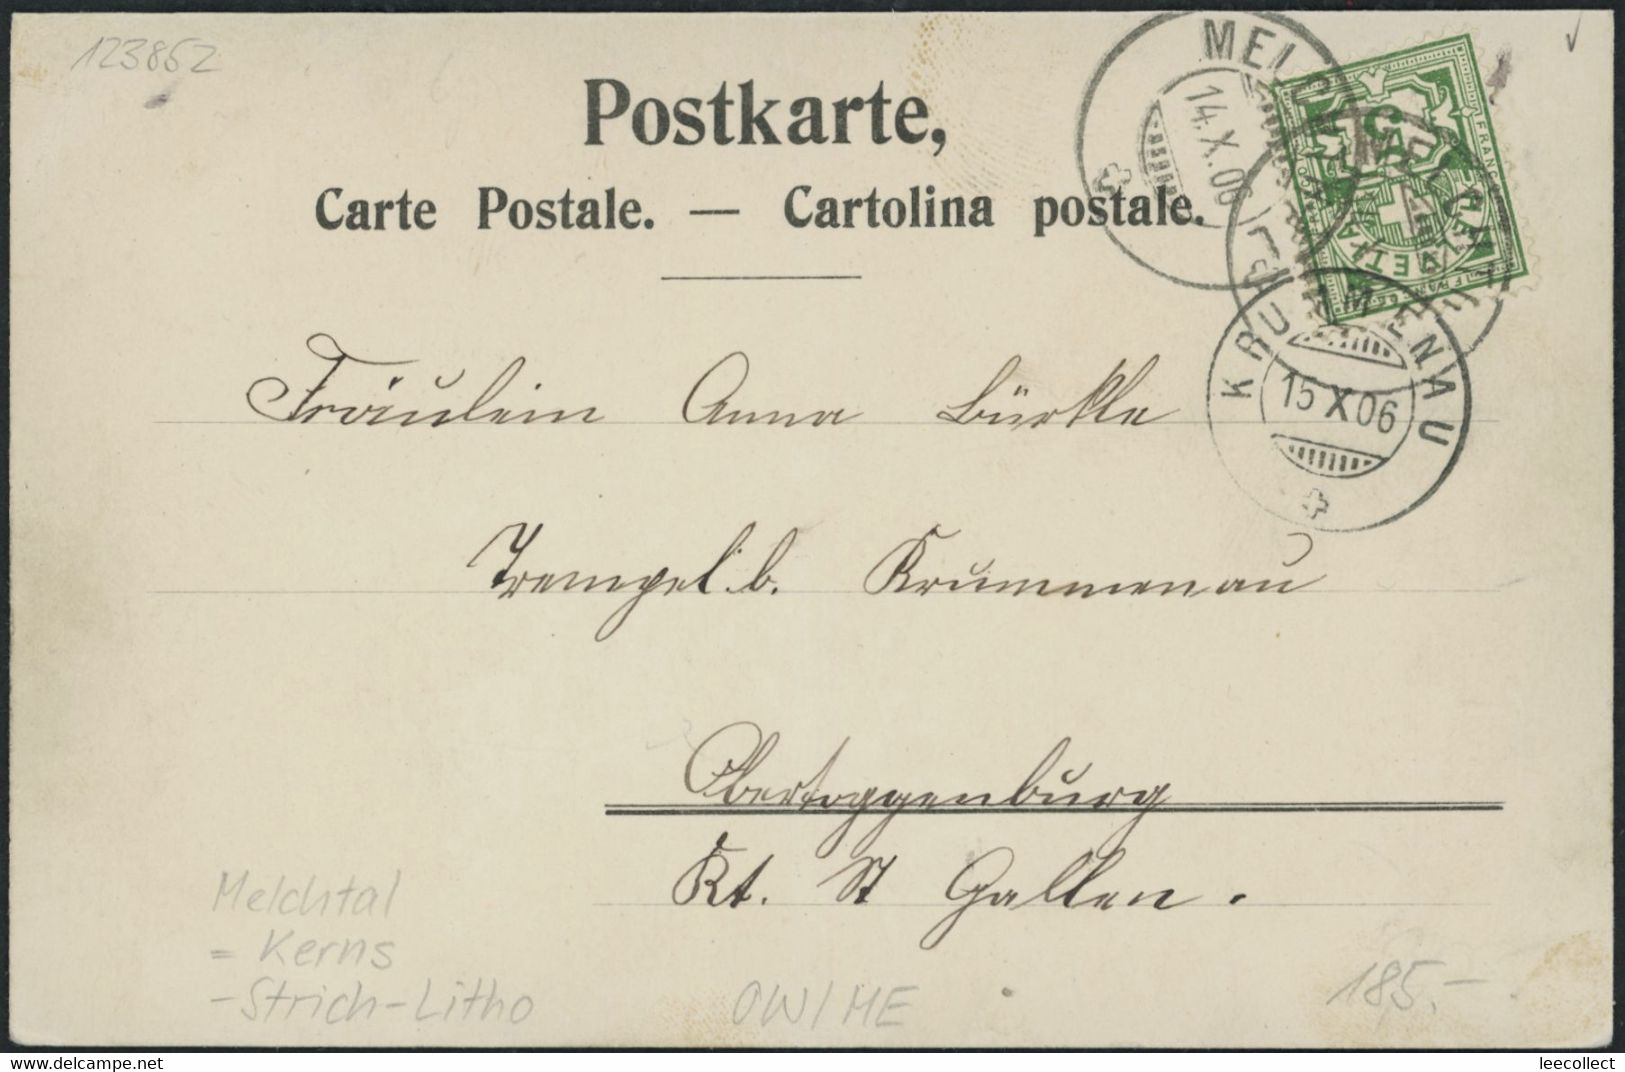 123852
Postkarte,
Carte Postale. — Cartolina postale.
14.X.06
KRUMMENAU
15 X 06
Fräulein Anna Bürkle
Trempel b. Krummenau
Obertoggenburg
Kt. St Gallen.
Melchtal
= Kerns
- Strich-Litho
OW/ME
185.-
www.delcampe.net
leecollect